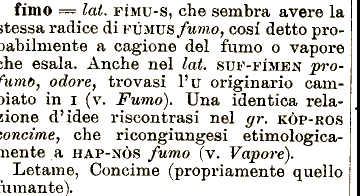 fimo = lat. FÍMU-S, che sembra avere la
stessa radice di FÚMUS fumo, cosí detto pro-
babilmente a cagione del fumo o vapore
che esala. Anche nel lat. SUF-FÍMEN pro-
fumo, odore, trovasi l'U originario cam-
biato in I (v. Fumo). Una identica rela-
zione d'idee riscontrasi nel gr. KÒP-ROS
concime, che ricongiungesi etimologica-
mente a HAP-NÒS fumo (v. Vapore).
Letame, Concime (propriamente quello
fumante).